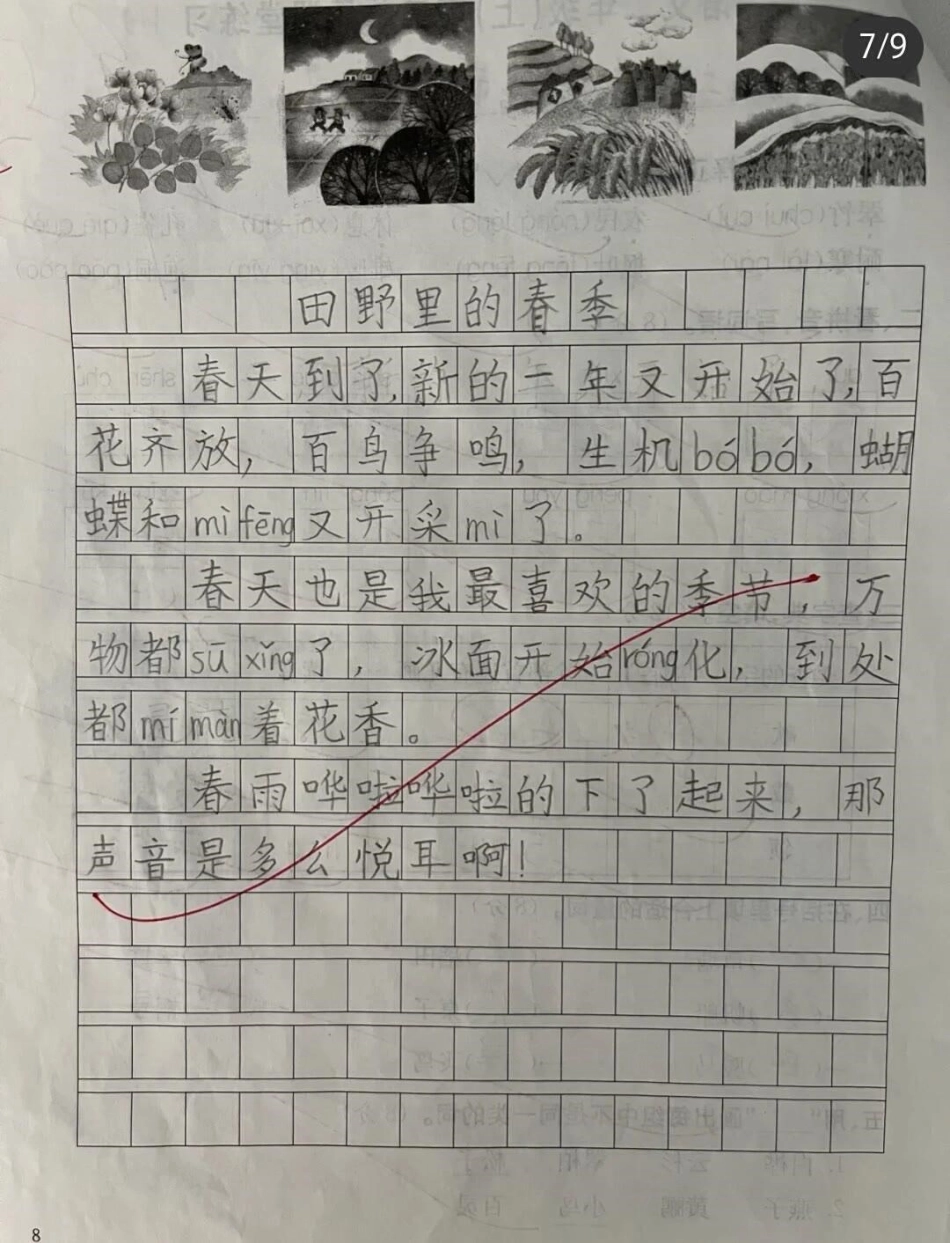 7/9
田野里的春季
春天到了,新的一年又开始了,百
花齐放,百鸟争鸣,生机bóbó,蝴
蝶和mìfēng又开采mì了。
春天也是我最喜欢的季节,万
物都sūxǐng了,冰面开始róng化,到处
都mímàn着花香。
春雨哗啦哗啦的下了起来,那
声音是多么悦耳啊!
8